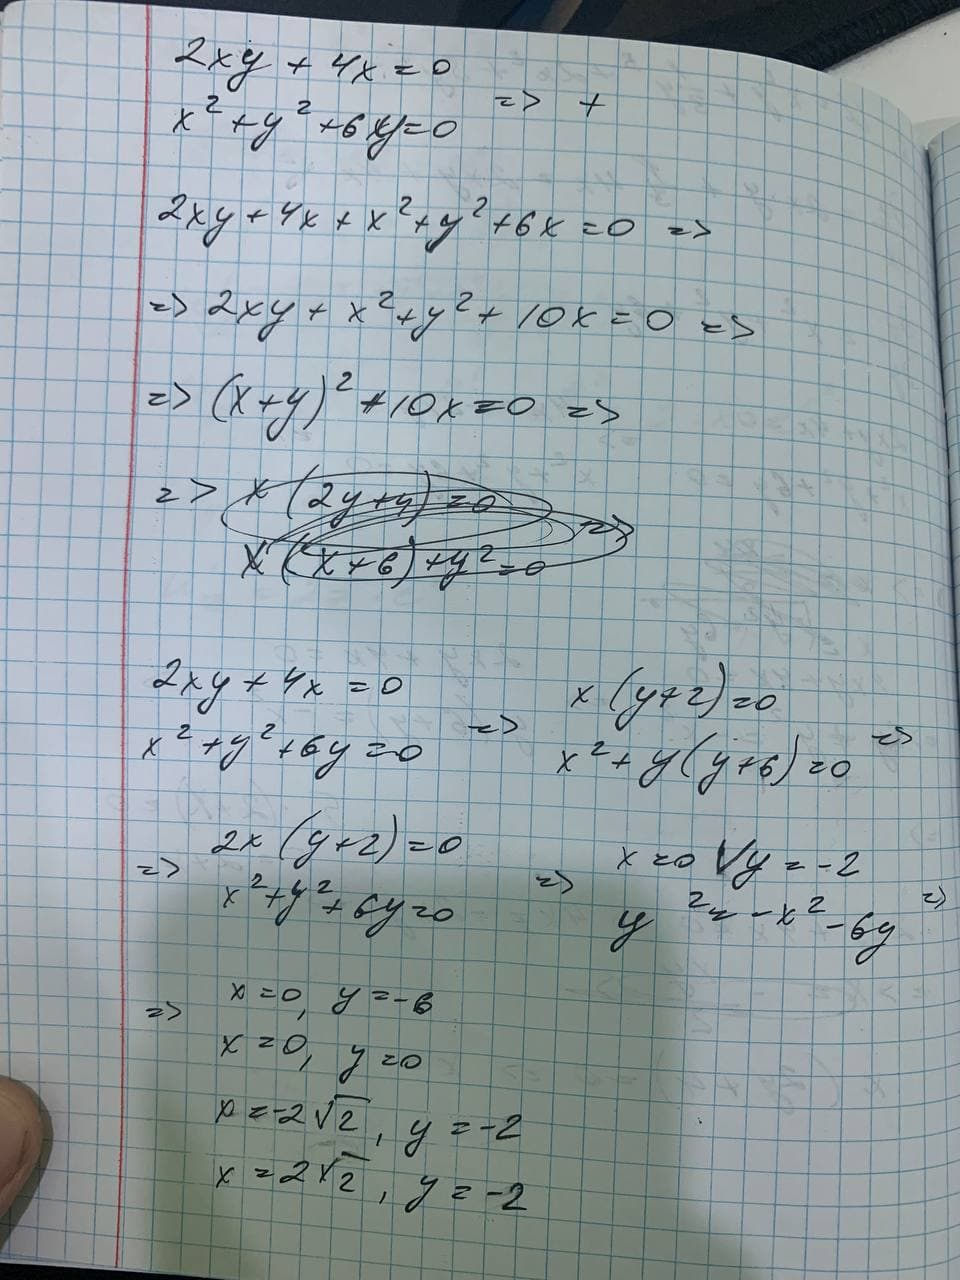 2xy + 4x = 0
x² + y² + 6y = 0 => +
2xy + 4x + x² + y² + 6x = 0 =>
=> 2xy + x² + y² + 10x = 0 =>
=> (x + y)² + 10x = 0 =>
=> x (2y + 4) = 0
x (x + 6) + y² = 0 =>
2xy + 4x = 0
x² + y² + 6y = 0 =>
x (y + 2) = 0
x² + y (y + 6) = 0 =>
=> 2x (y + 2) = 0
x² + y² + 6y = 0 =>
x = 0 ∨ y = -2
y² = -x² - 6y =>
=> x = 0, y = -6
x = 0, y = 0
x = -2√2, y = -2
x = 2√2, y = -2